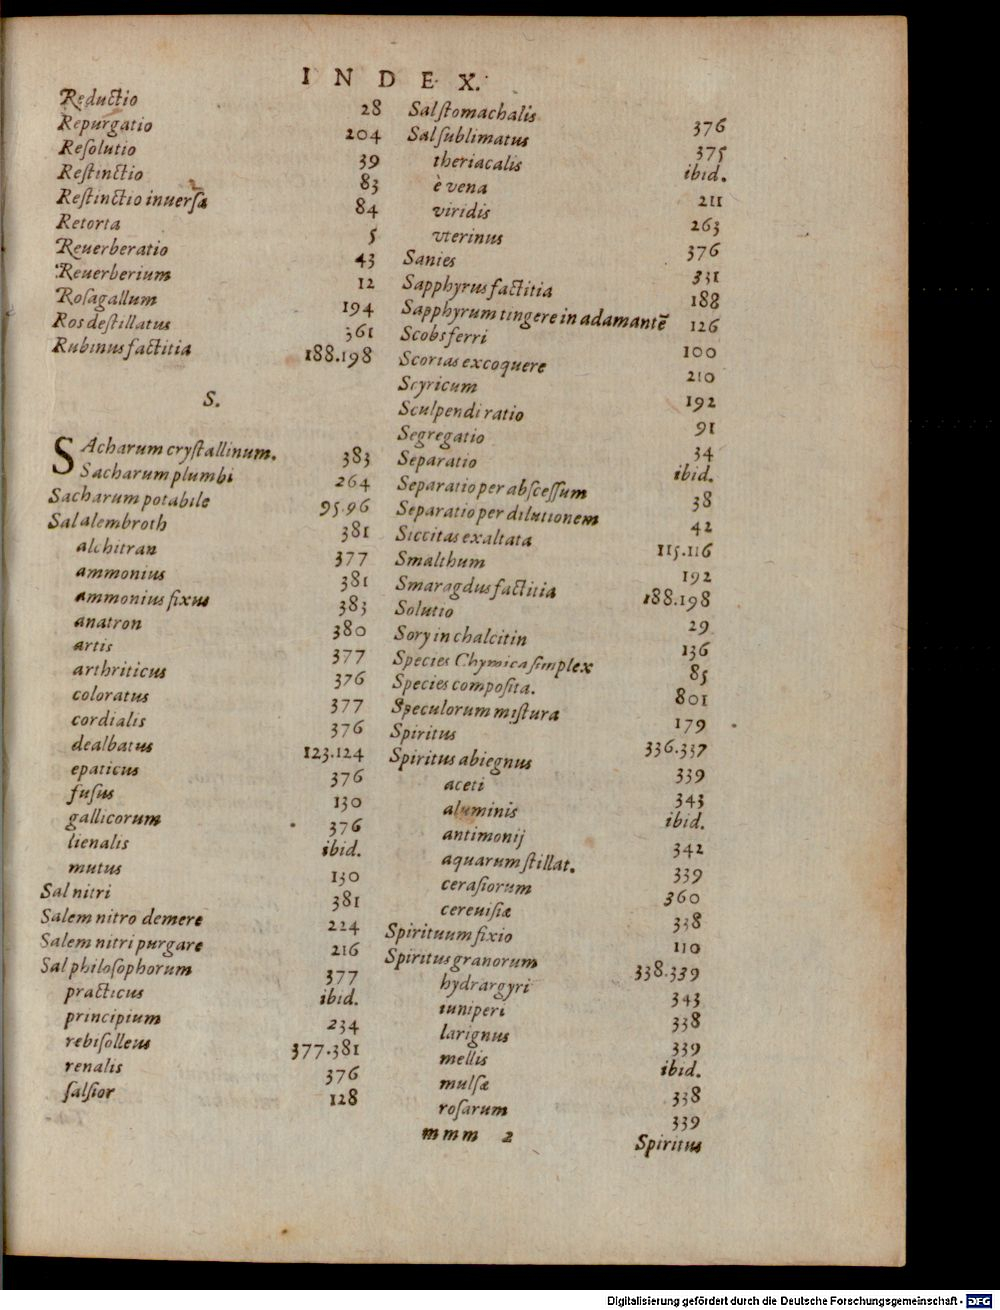 INDEX.
Reductio 28
Repurgatio 204
Reſolutio 39
Reſtinctio 83
Reſtinctio inuerſa 84
Retorta 5
Reuerberatio 43
Reuerberium 12
Roſagallum 194
Ros deſtillatus 361
Rubinus factitia 188.198
S.
SAcharum cryſtallinum. 383
Sacharum plumbi 264
Sacharum potabile 95.96
Sal alembroth 381
alchitran 377
ammonius 381
ammonius fixus 383
anatron 380
artis 377
arthriticus 376
coloratus 377
cordialis 376
dealbatus 123.124
epaticus 376
fuſus 130
gallicorum 376
lienalis ibid.
mutus 130
Sal nitri 381
Salem nitro demere 224
Salem nitri purgare 216
Sal philoſophorum 377
practicus ibid.
principium 234
rebiſolleus 377.381
renalis 376
ſalſior 128
Sal ſtomachalis 376
Sal ſublimatus 375
theriacalis ibid.
è vena 211
viridis 263
vterinus 376
Sanies 331
Sapphyrus factitia 188
Sapphyrum tingere in adamantē 126
Scobs ferri 100
Scorias excoquere 210
Scyricum 192
Sculpendi ratio 91
Segregatio 34
Separatio ibid.
Separatio per abſceſſum 38
Separatio per dilutionem 42
Siccitas exaltata 115.116
Smalthum 192
Smaragdus factitia 188.198
Solutio 29
Sory in chalcitin 136
Species Chymica ſimplex 85
Species compoſita. 801
Speculorum miſtura 179
Spiritus 336.337
Spiritus abiegnus 339
aceti 343
aluminis ibid.
antimonij 342
aquarum ſtillat. 339
ceraſiorum 360
cereuiſiæ 338
Spirituum fixio 110
Spiritus granorum 338.339
hydrargyri 343
iuniperi 338
larignus 339
mellis ibid.
mulſæ 338
roſarum 339
mmm 2 Spiritus
Digitalisierung gefördert durch die Deutsche Forschungsgemeinschaft - DFG